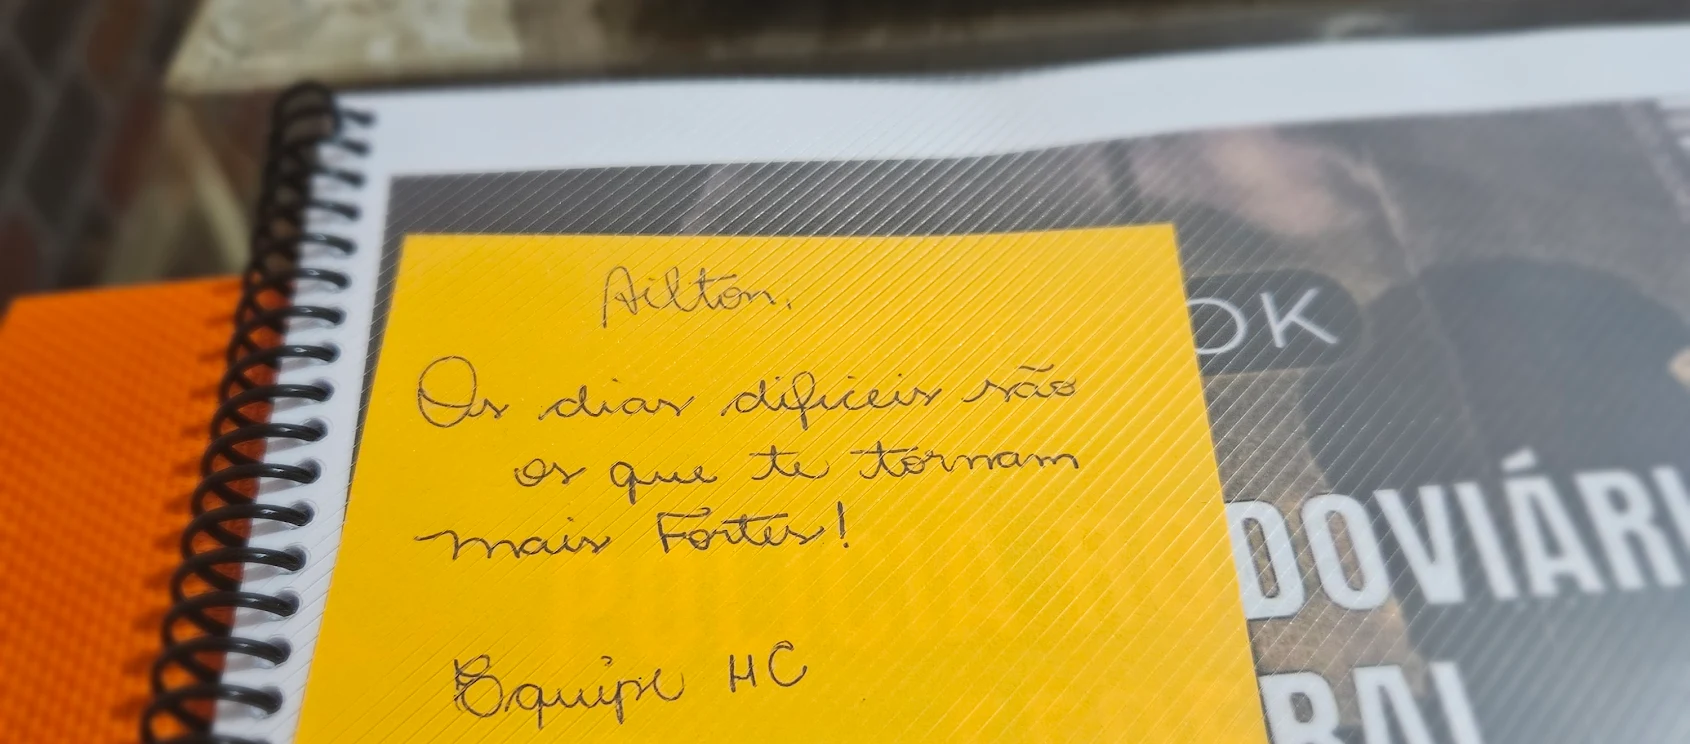 Ailton,
Os dias dificeis são
os que te tornam
mais Fortes!
Equipe HC
OK
DOVIÁRI
RAL